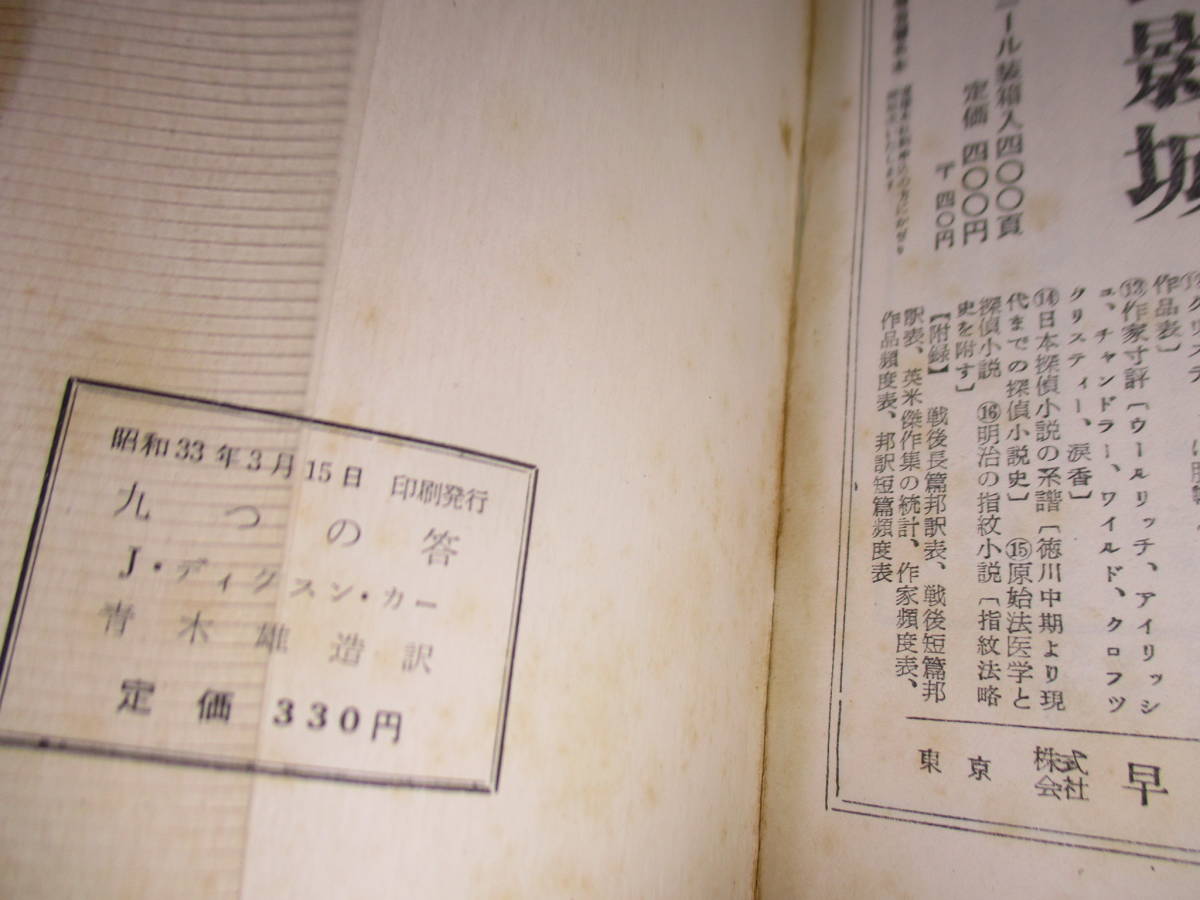 昭和33年3月15日 印刷発行
九つの答
J・ディクスン・カー
青木雄造訳
定価 330円
影城
ール装箱入四〇〇頁
定価 四〇〇円
〒 四〇円
作品表〕
⑬作家寸評〔ウールリッチ、アイリッシ
ュ、チャンドラー、ワイルド、クロフツ
クリスティー、涙香〕
⑭日本探偵小説の系譜〔徳川中期より現
代までの探偵小説史〕 ⑮原始法医学と
探偵小説 ⑯明治の指紋小説〔指紋法略
史を附す〕
【附録】 戦後長篇邦訳表、戦後短篇邦
訳表、英米傑作集の統計、作家頻度表、
作品頻度表、邦訳短篇頻度表
東京 株式会社 早